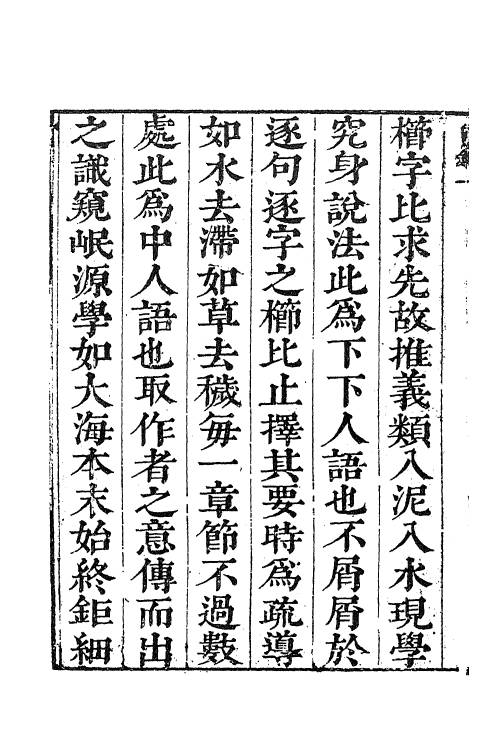 櫛字比求先故推義類入泥入水現學
究身說法此爲下下人語也不屑屑於
逐句逐字之櫛比止擇其要時爲疏導
如水去滯如草去穢每一章節不過數
處此爲中人語也取作者之意傳而出
之識窺岷源學如大海本末始終鉅細